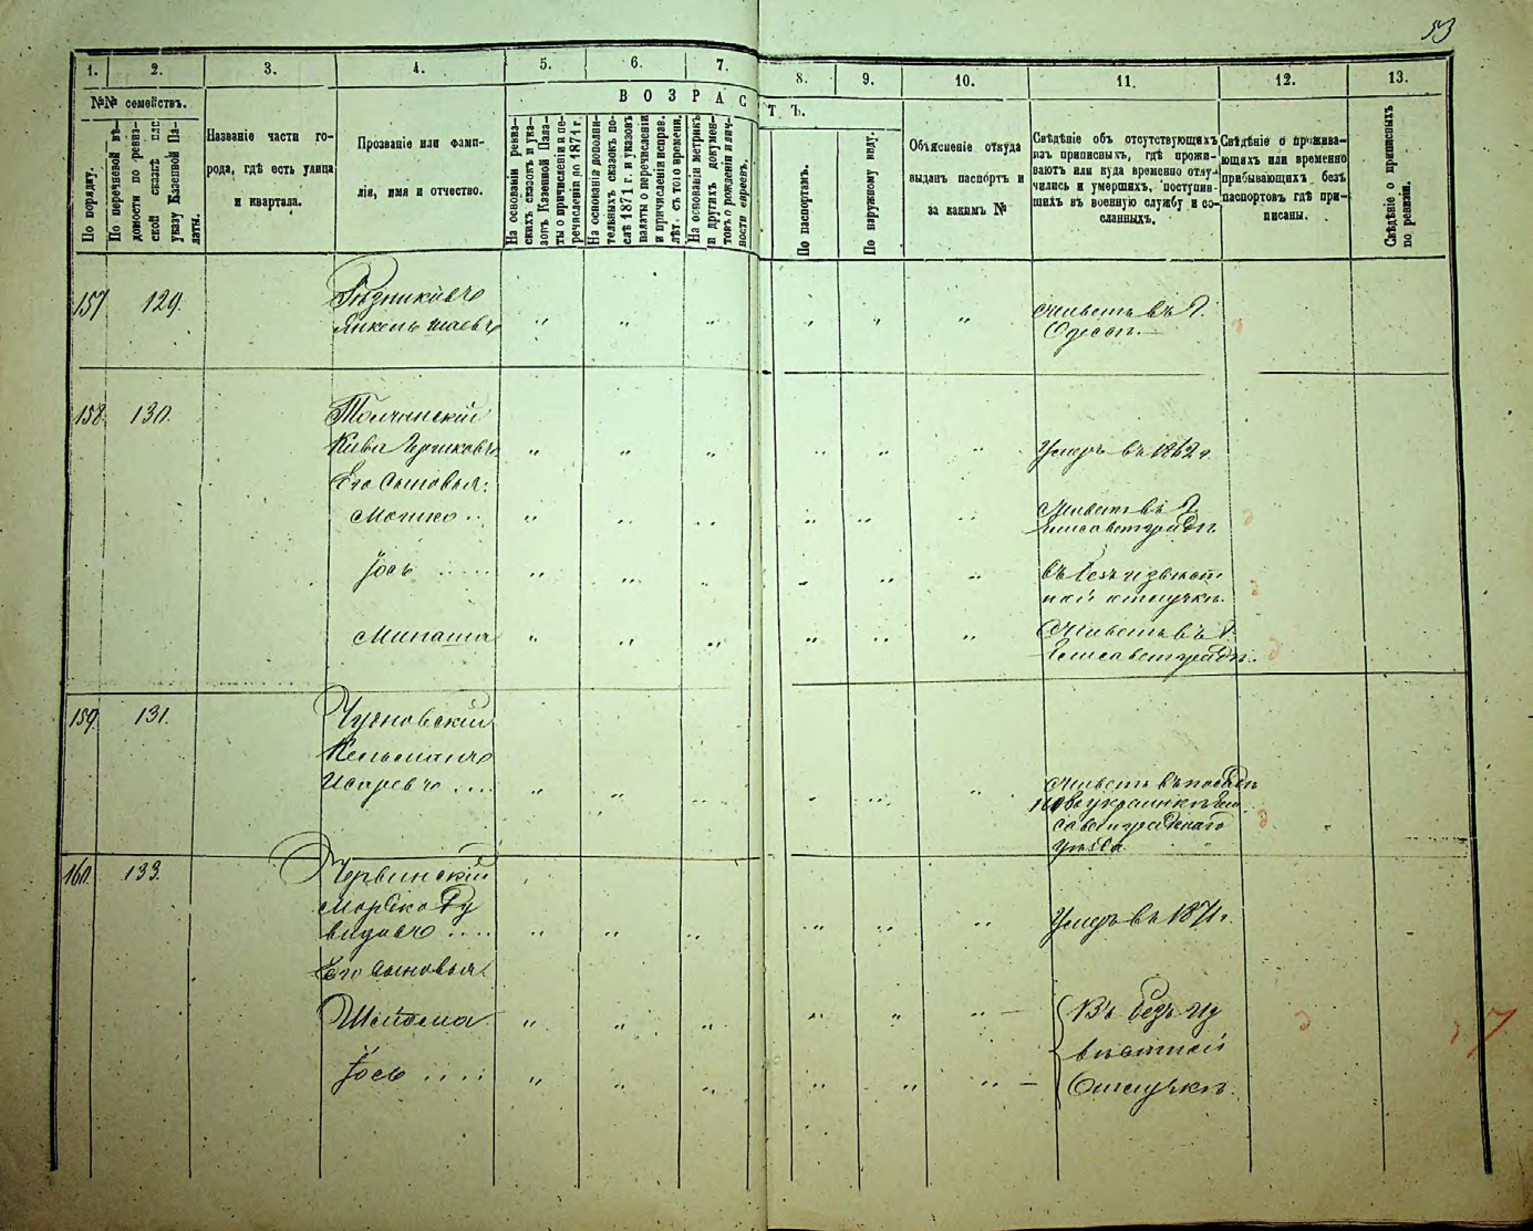 53
1. 2. 3. 4. 5. 6. 7. 8. 9. 10. 11. 12. 13.
№№ семействъ.
По порядку.
По перечневой вѣ-
домости по ревиз-
ской сказкѣ или
указу Казенной Па-
латы.
Названіе части го-
рода, гдѣ есть улица
и квартала.
Прозваніе или фами-
лія, имя и отчество.
ВОЗРАСТЪ.
На основаніи ревиз-
скихъ сказокъ и ука-
зовъ Казенной Пала-
ты о причисленіи и пе-
речисленіи до 1871 г.
На основаніи дополни-
тельныхъ сказокъ по-
слѣ 1871 г. и указовъ
палаты о перечисленіи
и причисленіи исправ.
лѣт. съ того времени.
На основаніи метрикъ
и других докумен-
товъ о рожденіи и лич-
ности евреевъ.
По паспортамъ.
По наружному виду.
Объясненіе откуда
выданъ паспортъ и
за какимъ №
Свѣдѣніе объ отсутствующихъ
изъ приписныхъ, гдѣ прожи-
ваютъ или куда временно отлу-
чились и умершихъ, поступив-
шихъ въ военную службу и со-
сланныхъ.
Свѣдѣніе о прожива-
ющихъ или временно
прибывающихъ безъ
паспортовъ гдѣ при-
писаны.
Свѣдѣніе о приписныхъ
по ревизіи.
157 129.
Рѣзниковъ
Янкель Шаевъ " " " " " " Живетъ въ Г.
Одессѣ.
158. 130.
Толчинскій
Кива Гершковъ " " " " " " Умеръ въ 1862 г.
Его Сыновья:
Мошко .. " " " " " " Живетъ въ Г.
Елисаветградѣ
Іось ..... " " " " " " въ безъизвѣст
ной отлучкѣ.
Минаша " " " " " " Живетъ въ Г.
Елисаветградѣ.
159. 131.
Чудновскій
Кельманъ
Исаревъ .... " " " " " " Живетъ въ посадѣ
Новоукраинкѣ Ели
саветградскаго
уѣзда.
160. 133.
Червинскій
Мордко Ду
видовъ .... " " " " " " Умеръ въ 1871 г.
Его сыновья:
Шейдема " " " " " " Въ безъ из
вѣстной
Іось ..... " " " " " " Отлучкѣ.